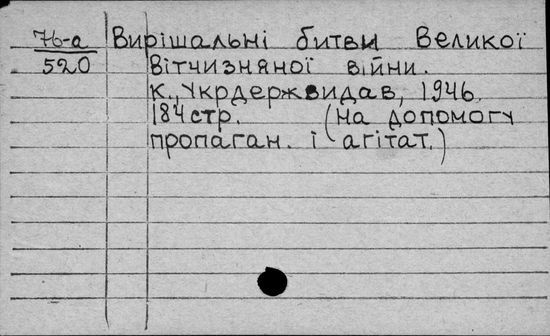 76-а Вирішальні битви Великої
520 Вітчизняної війни.
К., Укрдержвидав, 1946.
184 стр. (На допомогу
пропаган. і агітат.)